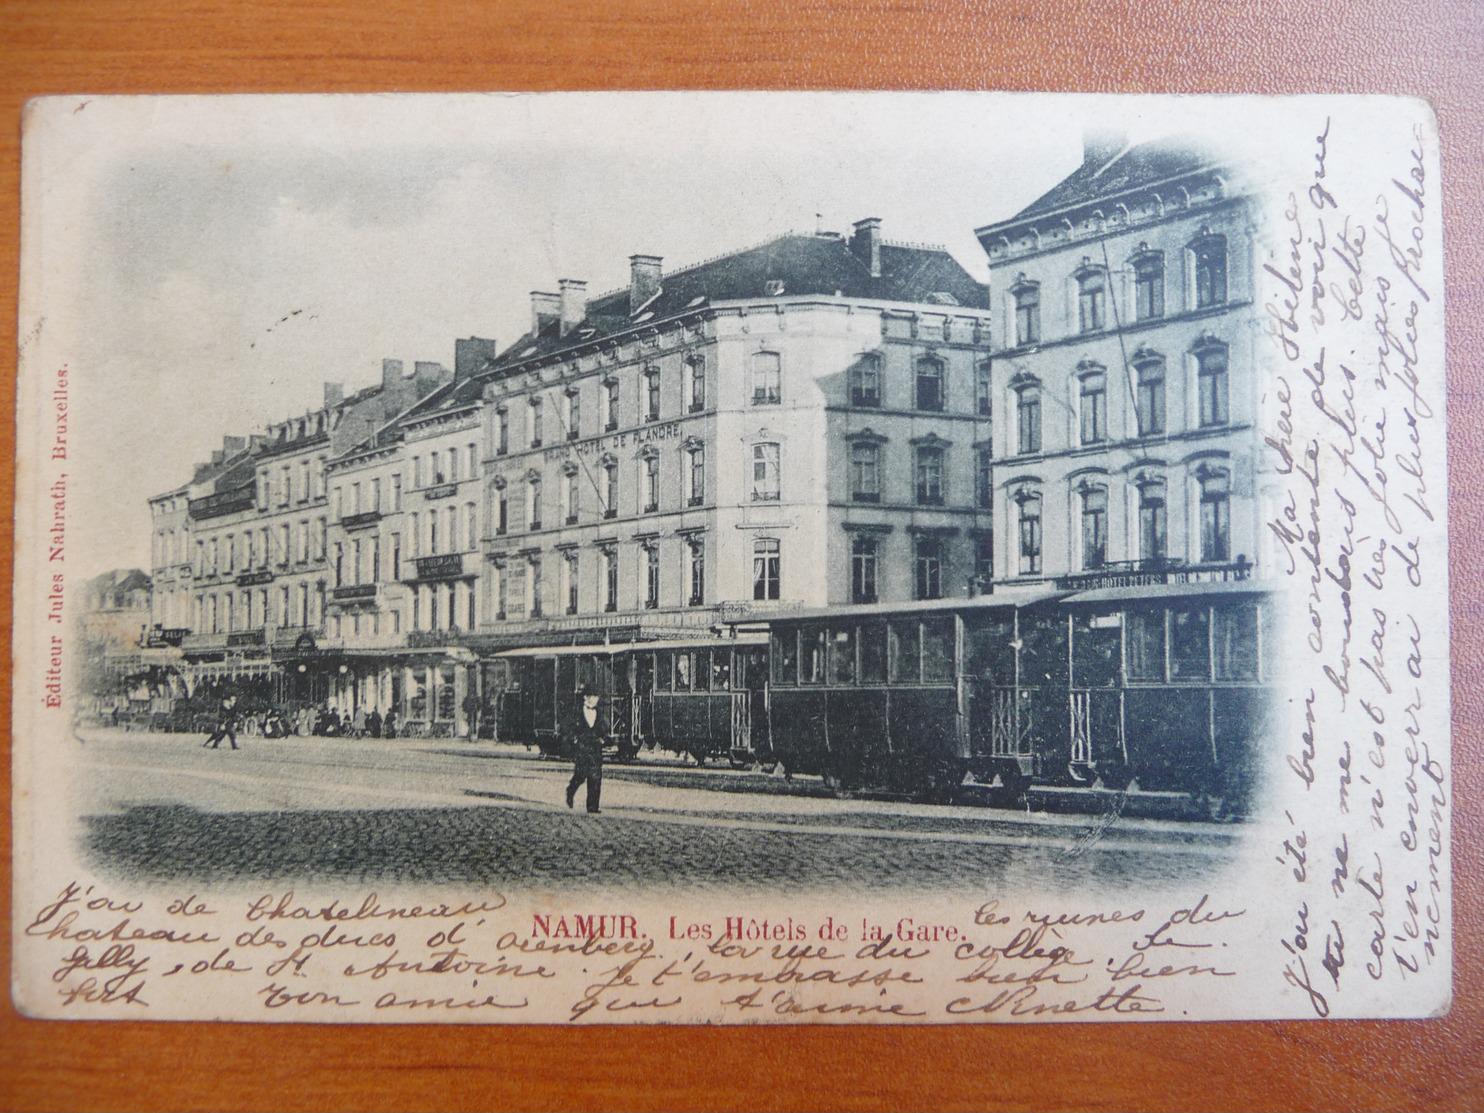 Éditeur Jules Nahrath, Bruxelles.
GRAND HÔTEL DE FLANDRE
HÔTEL
NAMUR. Les Hôtels de la Gare.
Ma chère Hélène
J'ai été bien contente de voir que
tu ne me boudais plus. Cette
carte n'est pas très jolie mais je
t'en enverrai de plus jolies prochai-
nement
J'ai de Chatelineau les ruines du
chateau des ducs d'Arenberg, la rue du collège, de
Gilly, de St. Antoine. Je t'embrasse bien bien
fort ton amie qui t'aime Ninette.